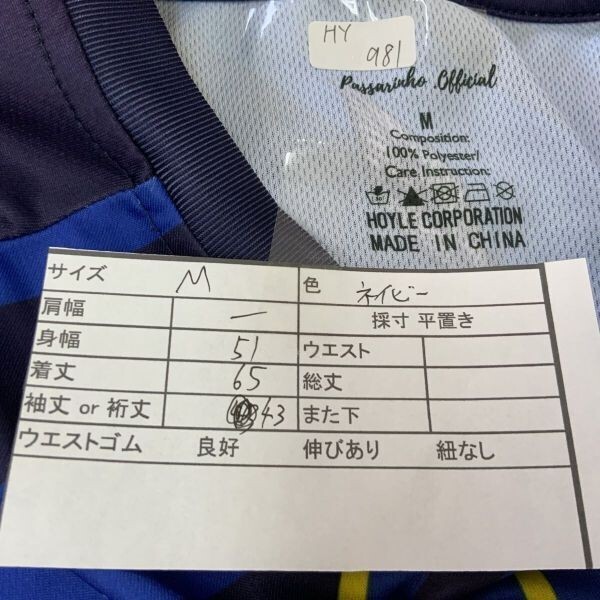 HY
981
Passarinho .Official
M
Composition:
100% Polyester/
Care Instruction:
HOYLE CORPORATION
MADE IN CHINA
サイズ M 色 ネイビー
肩幅 — 採寸 平置き
身幅 51 ウエスト
着丈 65 総丈
袖丈 or 裄丈 43 また下
ウエストゴム 良好 伸びあり 紐なし